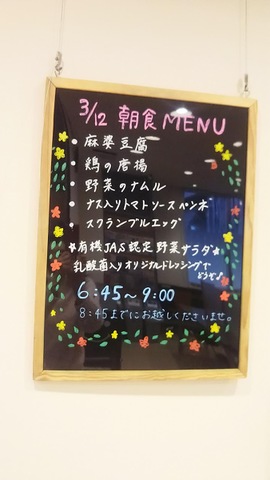 3/12 朝食MENU
• 麻婆豆腐
• 鶏の唐揚
• 野菜のナムル
• ナス入りトマトソースペンネ
• スクランブルエッグ
☆有機JAS認定野菜サラダ☆
乳酸菌入りオリジナルドレッシングで
どうぞ♪
6:45〜9:00
8:45までにお越しくださいませ。